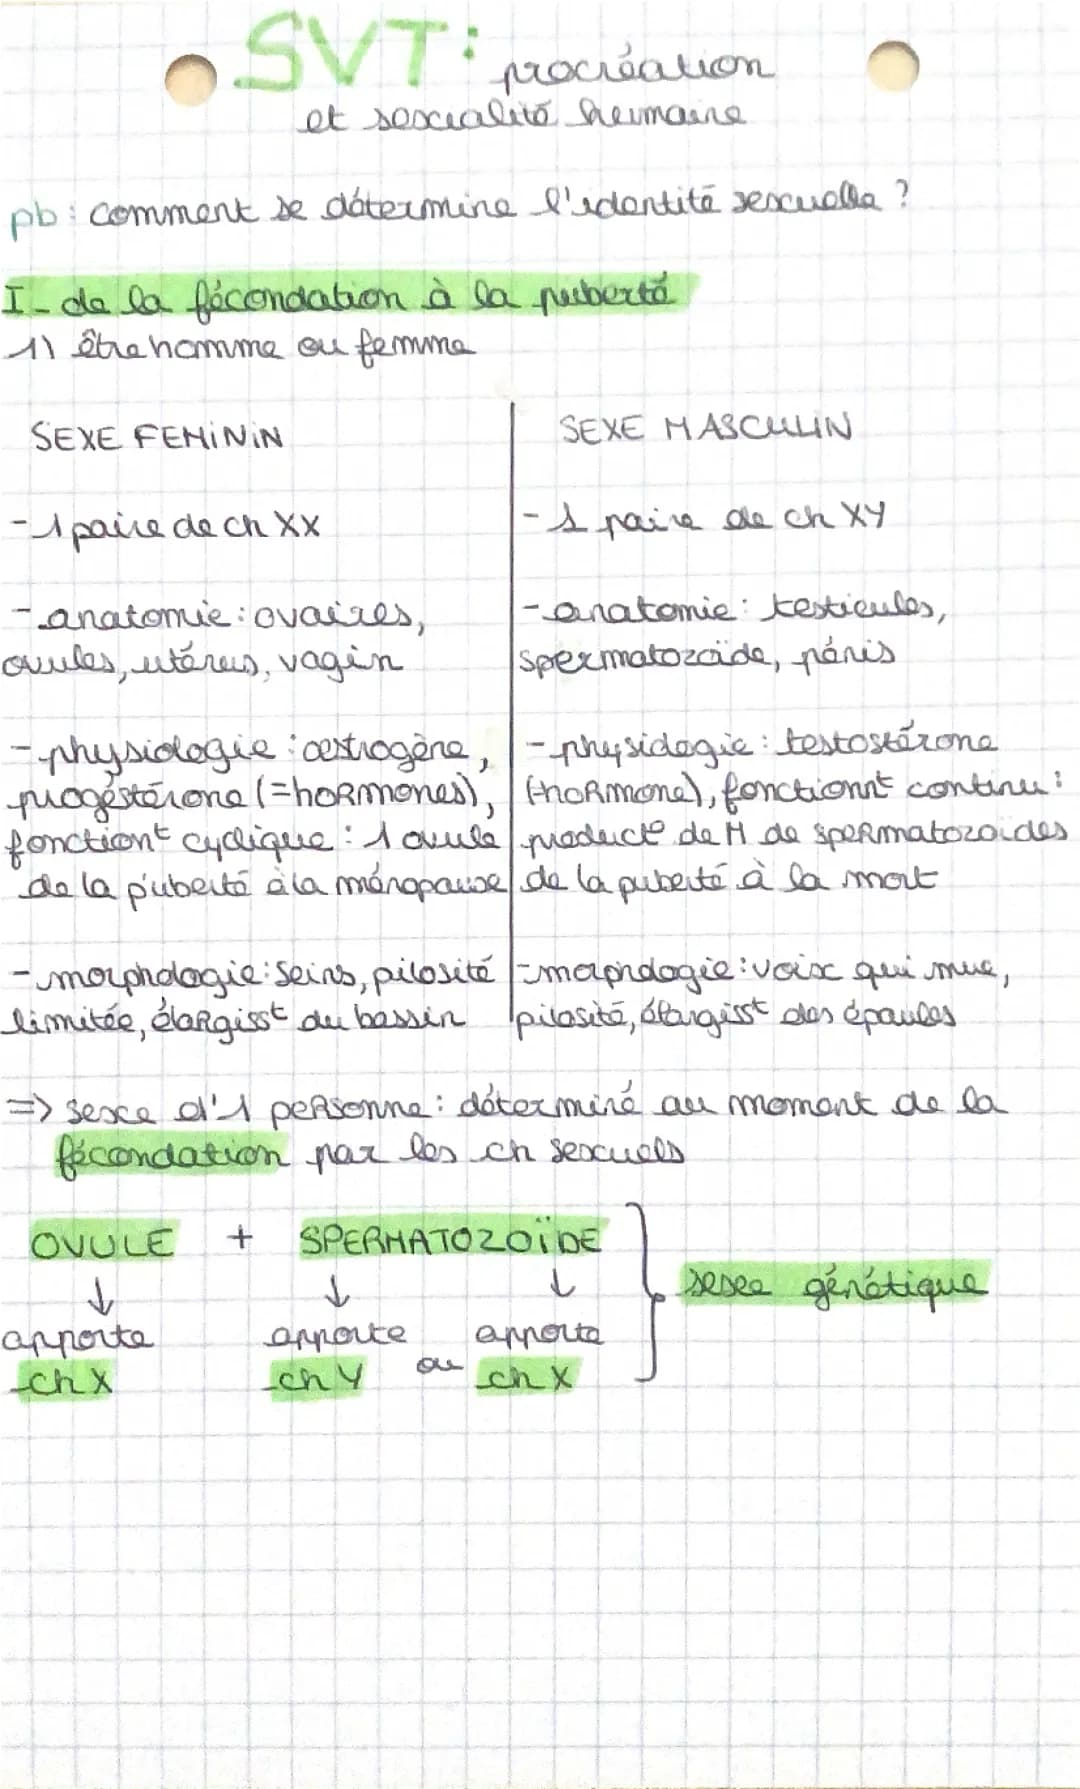 SVT: procréation
et sexualité humaine
pb: comment se détermine l'identité sexuelle ?
I- de la fécondation à la puberté
1) être homme ou femme
SEXE FEMININ
- 1 paire de ch XX
- anatomie: ovaires,
ovules, utérus, vagin
- physiologie: œstrogène,
progéstérone (=hormones),
fonctiont cyclique: 1 ovule
de la puberté à la ménopause
- morphologie: seins, pilosité
limitée, élargisst du bassin
SEXE MASCULIN
- 1 paire de ch XY
- anatomie: testicules,
spermatozoïde, pénis
- physiologie: testostérone
(hormone), fonctionnt continu:
producto de M de spermatozoïdes
de la puberté à la mort
- morphologie: voix qui mue,
pilosité, élargisst des épaules
=> sexe d'1 personne: déterminé au moment de la
fécondation par les ch sexuels
OVULE + SPERMATOZOÏDE
↓ ↓ ↓
apporte apporte apporte
ch X ch Y ou ch X
sexe génétique